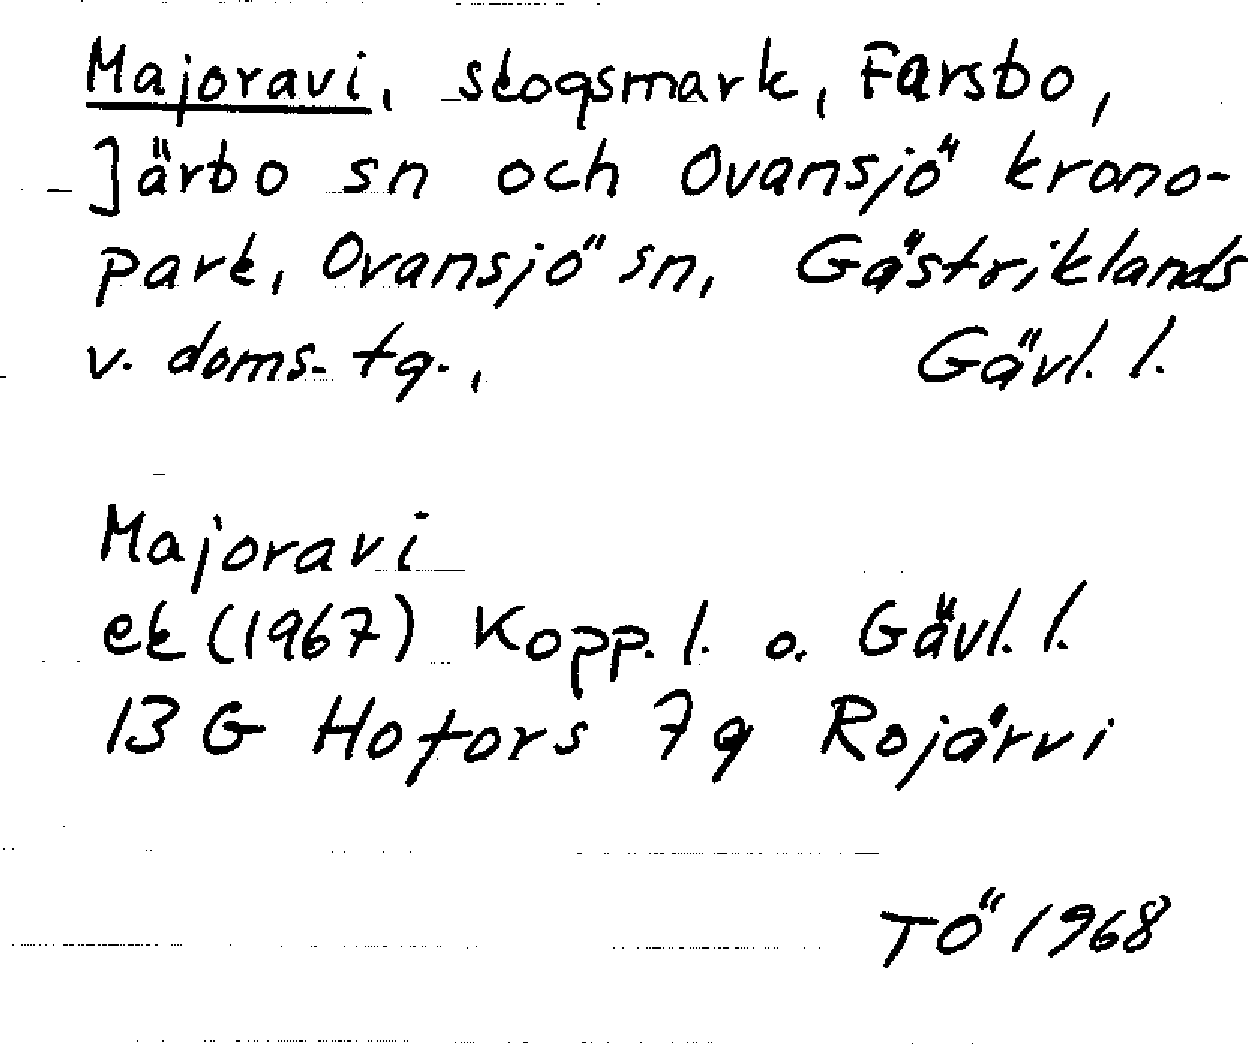 Majoravi, skogsmark, Farsbo,
Järbo sn och Ovansjö krono-
park, Ovansjö sn, Gästriklands
v. doms. tg.,  Gävl. l.
Majoravi
ek (1967) Kopp. l. o. Gävl. l.
13 G Hofors 7g Rojärvi
TÖ 1968